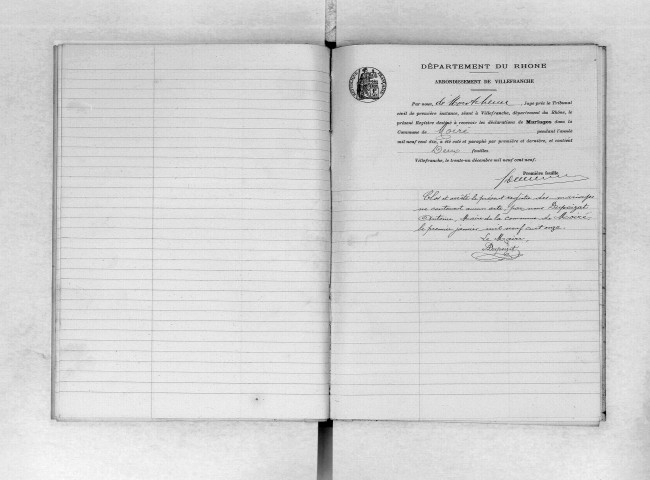 DÉPARTEMENT DU RHONE
ARRONDISSEMENT DE VILLEFRANCHE
Par nous, de Juge près le Tribunal
civil de première instance, séant à Villefranche, département du Rhône, le
présent Registre destiné à recevoir les déclarations de Mariages dans la
Commune de Moiré pendant l'année
mil neuf cent dix, a été coté et paraphé par première et dernière, et contient
Deux feuilles.
Villefranche, le trente-un décembre mil neuf cent neuf.
Première feuille
Clos et arrêté le présent registre des mariages
ne contenant aucun acte par nous Dupeizat
Maire de la commune de Moiré
le premier janvier mil neuf cent onze.
Le Maire,